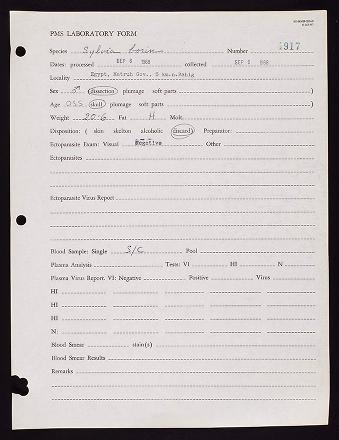 PMS LABORATORY FORM
Species Sylvia borin Number 1917
Dates: processed SEP 6 1968 collected SEP 6 1968
Locality Egypt, Matruh Gov., 5 km.n.Rabig
Sex ♂ (dissection) plumage soft parts )
Age OSS (skull) plumage soft parts )
Weight 20.6 Fat H Molt
Disposition: ( skin skelton alcoholic discard) Preparator:
Ectoparasite Exam: Visual Negative Other
Ectoparasites
Ectoparasite Virus Report
Blood Sample: Single S/C Pool
Plasma Analysis Tests: VI HI N
Plasma Virus Report. VI: Negative Positive Virus
HI
HI
HI
N:
Blood Smear stain(s)
Blood Smear Results
Remarks